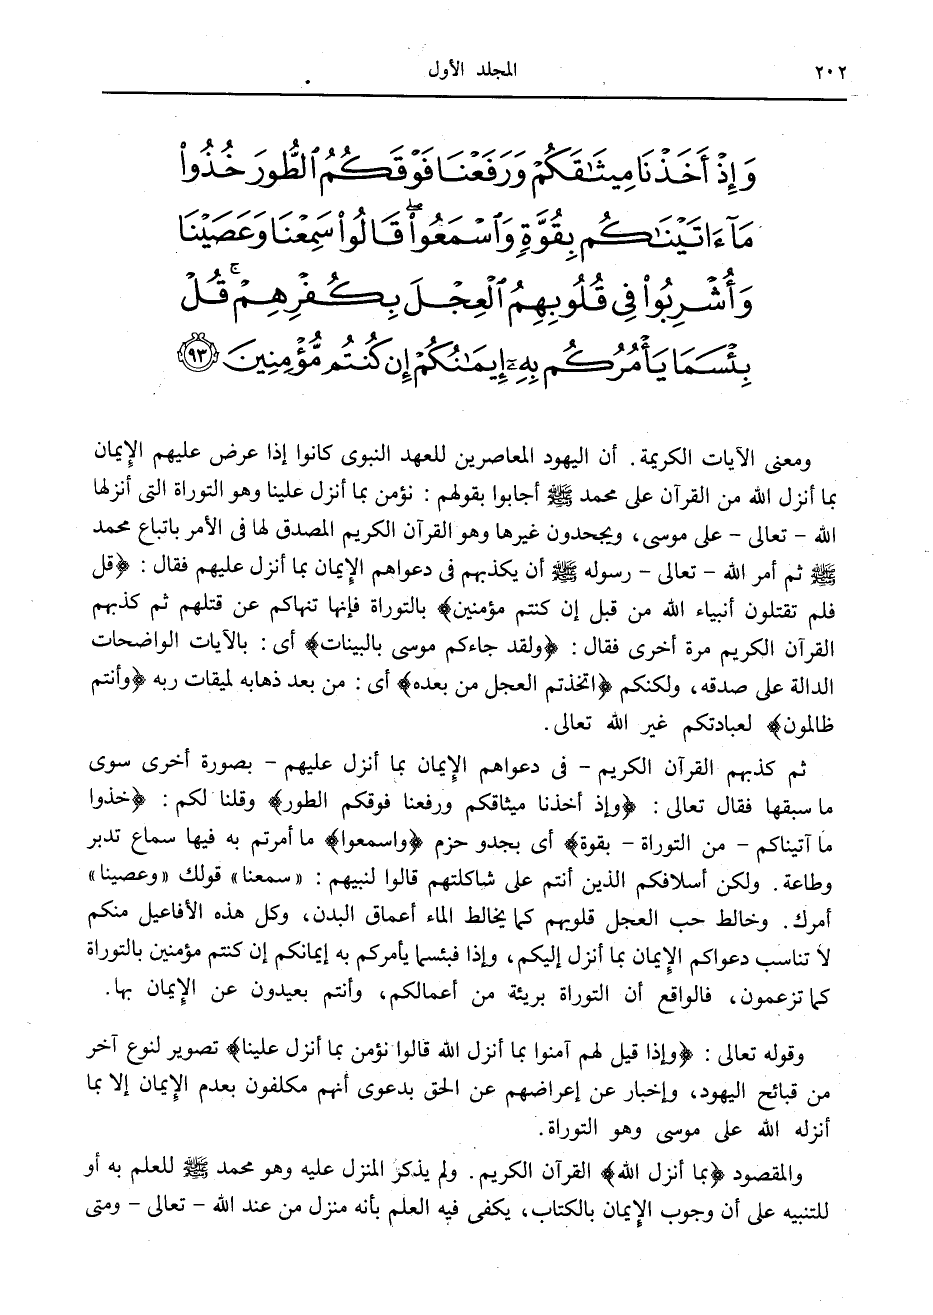 ٢٠٢
المجلد الأول
وَإِذْ أَخَذْنَا مِيثَٰقَكُمْ وَرَفَعْنَا فَوْقَكُمُ ٱلطُّورَ خُذُوا۟
مَآ ءَاتَيْنَٰكُم بِقُوَّةٍ وَٱسْمَعُوا۟ ۖ قَالُوا۟ سَمِعْنَا وَعَصَيْنَا
وَأُشْرِبُوا۟ فِى قُلُوبِهِمُ ٱلْعِجْلَ بِكُفْرِهِمْ ۚ قُلْ
بِئْسَمَا يَأْمُرُكُم بِهِۦٓ إِيمَٰنُكُمْ إِن كُنتُم مُّؤْمِنِينَ ﴿٩٣﴾
ومعنى الآيات الكريمة. أن اليهود المعاصرين للعهد النبوى كانوا إذا عرض عليهم الإيمان
بما أنزل الله من القرآن على محمد ﷺ أجابوا بقولهم : نؤمن بما أنزل علينا وهو التوراة التى أنزلها
الله – تعالى – على موسى، ويجحدون غيرها وهو القرآن الكريم المصدق لها فى الأمر باتباع محمد
ﷺ ثم أمر الله – تعالى – رسوله ﷺ أن يكذبهم فى دعواهم الإيمان بما أنزل عليهم فقال : ﴿قل
فلم تقتلون أنبياء الله من قبل إن كنتم مؤمنين﴾ بالتوراة فإنها تنهاكم عن قتلهم ثم كذبهم
القرآن الكريم مرة أخرى فقال : ﴿ولقد جاءكم موسى بالبينات﴾ أى : بالآيات الواضحات
الدالة على صدقه، ولكنكم ﴿اتخذتم العجل من بعده﴾ أى : من بعد ذهابه لميقات ربه ﴿وأنتم
ظالمون﴾ لعبادتكم غير الله تعالى.
ثم كذبهم القرآن الكريم – فى دعواهم الإيمان بما أنزل عليهم – بصورة أخرى سوى
ما سبقها فقال تعالى : ﴿وإذ أخذنا ميثاقكم ورفعنا فوقكم الطور﴾ وقلنا لكم : ﴿خذوا
ما آتيناكم – من التوراة – بقوة﴾ أى بجدو حزم ﴿واسمعوا﴾ ما أمرتم به فيها سماع تدبر
وطاعة. ولكن أسلافكم الذين أنتم على شاكلتهم قالوا لنبيهم : «سمعنا» قولك «وعصينا»
أمرك. وخالط حب العجل قلوبهم كما يخالط الماء أعماق البدن، وكل هذه الأفاعيل منكم
لا تناسب دعواكم الإيمان بما أنزل إليكم، وإذا فبئسما يأمركم به إيمانكم إن كنتم مؤمنين بالتوراة
كما تزعمون، فالواقع أن التوراة بريئة من أعمالكم، وأنتم بعيدون عن الإيمان بها.
وقوله تعالى : ﴿وإذا قيل لهم آمنوا بما أنزل الله قالوا نؤمن بما أنزل علينا﴾ تصوير لنوع آخر
من قبائح اليهود، وإخبار عن إعراضهم عن الحق بدعوى أنهم مكلفون بعدم الإيمان إلا بما
أنزله الله على موسى وهو التوراة.
والمقصود ﴿بما أنزل الله﴾ القرآن الكريم. ولم يذكر المنزل عليه وهو محمد ﷺ للعلم به أو
للتنبيه على أن وجوب الإيمان بالكتاب، يكفى فيه العلم بأنه منزل من عند الله – تعالى – ومتى